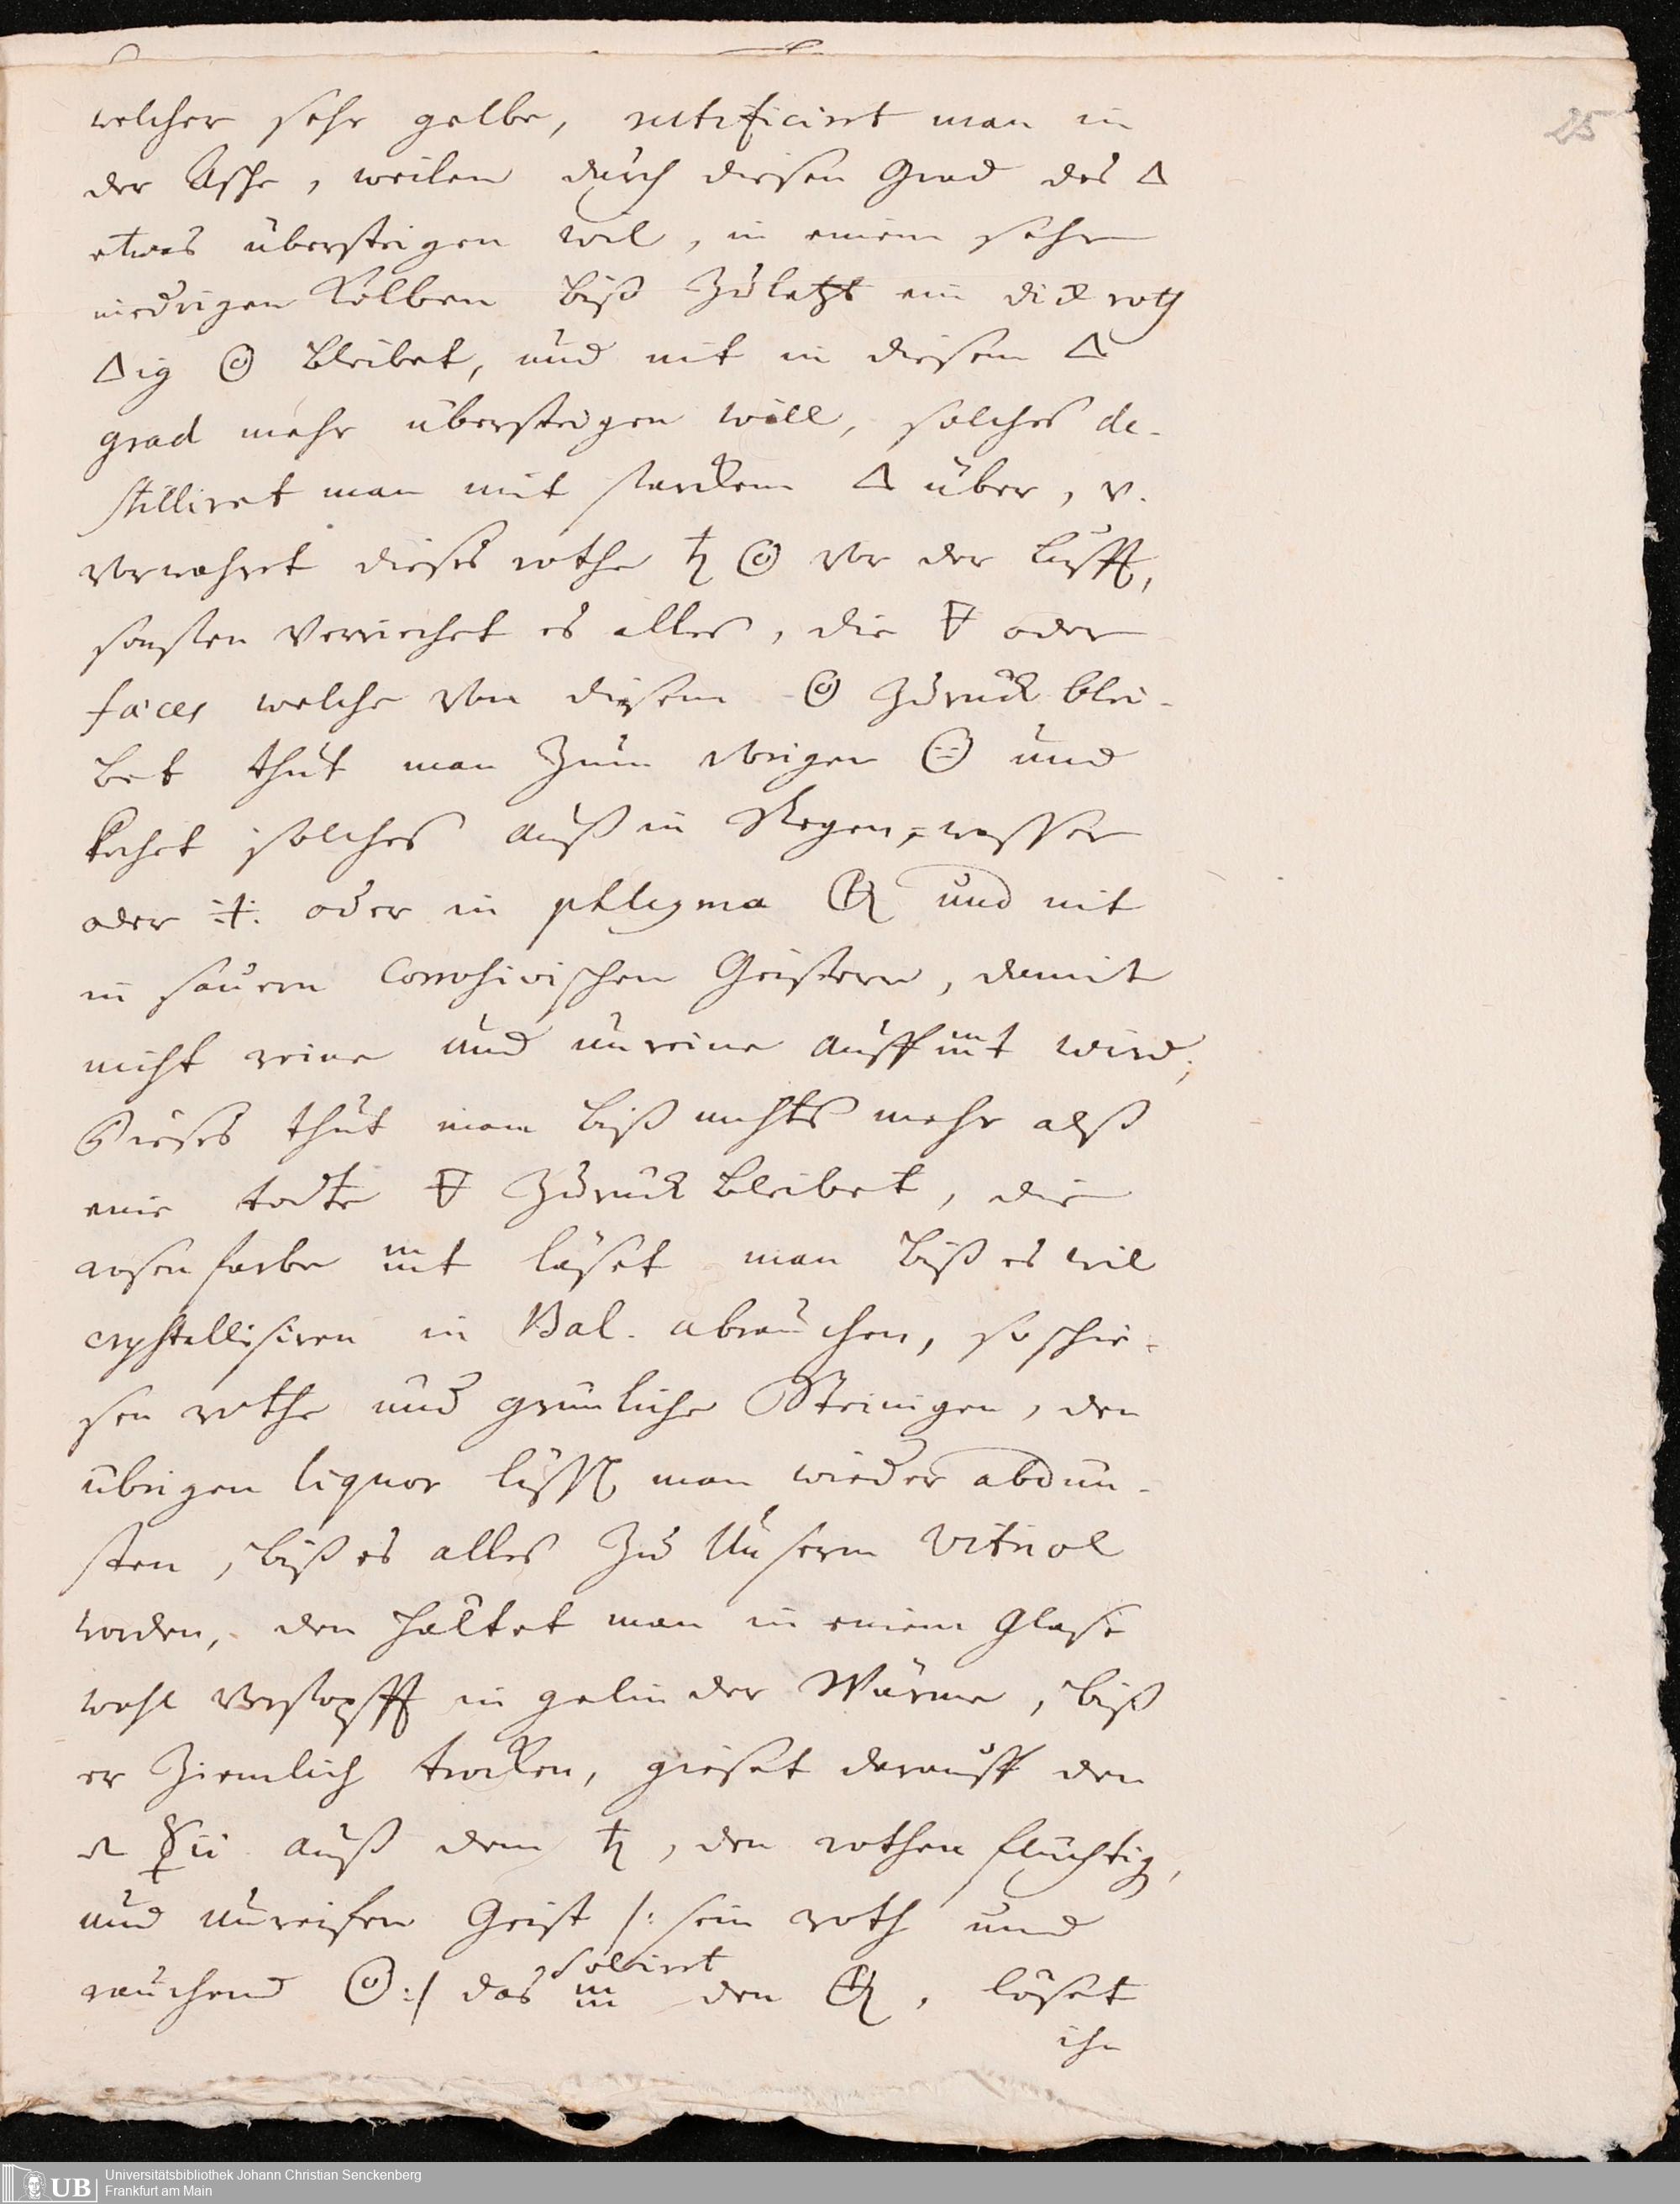 welcher sehr gelbe, rectificirt man in
25
der Asche, weilen durch diesen Grad des 🜂
etwas übersteigen wil, in einem sehr
niedrigen Kolben biß zuletzt ein dick roth
🜂ig bleibet, und nit in diesem 🜂
grad mehr übersteigen will, solches de-
stilliret man mit starckem 🜂 über, v.
verwahret dieses rothe ♄ vor der Lufft,
sonsten verriechet es alles, die 🜃 oder
fæces welche von diesem zuruck blei-
bet thut man zum vbrigen und
kochet solches auß in Regen-wasser
oder oder in phlegma und nit
in sauern Corrosivischen Geistern, damit
nicht reine und unreine auff wird,
Dieses thut man biß nichts mehr alß
eine todte 🜃 zuruck bleibet, die
rosenfarbe läset man biß es wil
crystallisiren in Bal. abrauchen, so schie-
sen rothe und grünliche Steinigen, den
übrigen liquor läßt man wieder abdun-
sten, biß es alles zu Unserm Vitriol
worden, den haltet man in einem Glase
wohl verstopfft in gelinder Wärme, biß
er ziemlich trocken, gieset darauff den
☿ii auß dem ♄, den rothen flüchtig,
und unreifen Geist /: sein roth und
rauchend :/ das solvirt den , löset
ihn
UB
Universitätsbibliothek Johann Christian Senckenberg
Frankfurt am Main